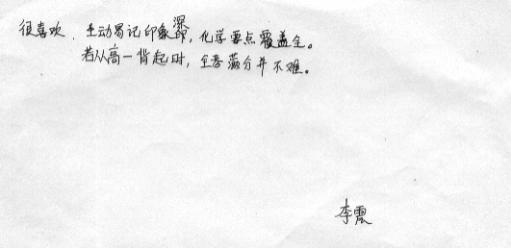 很喜欢. 生动易记印象深, 化学要点覆盖全。
若从高一背起时, 全卷满分并不难。
李震